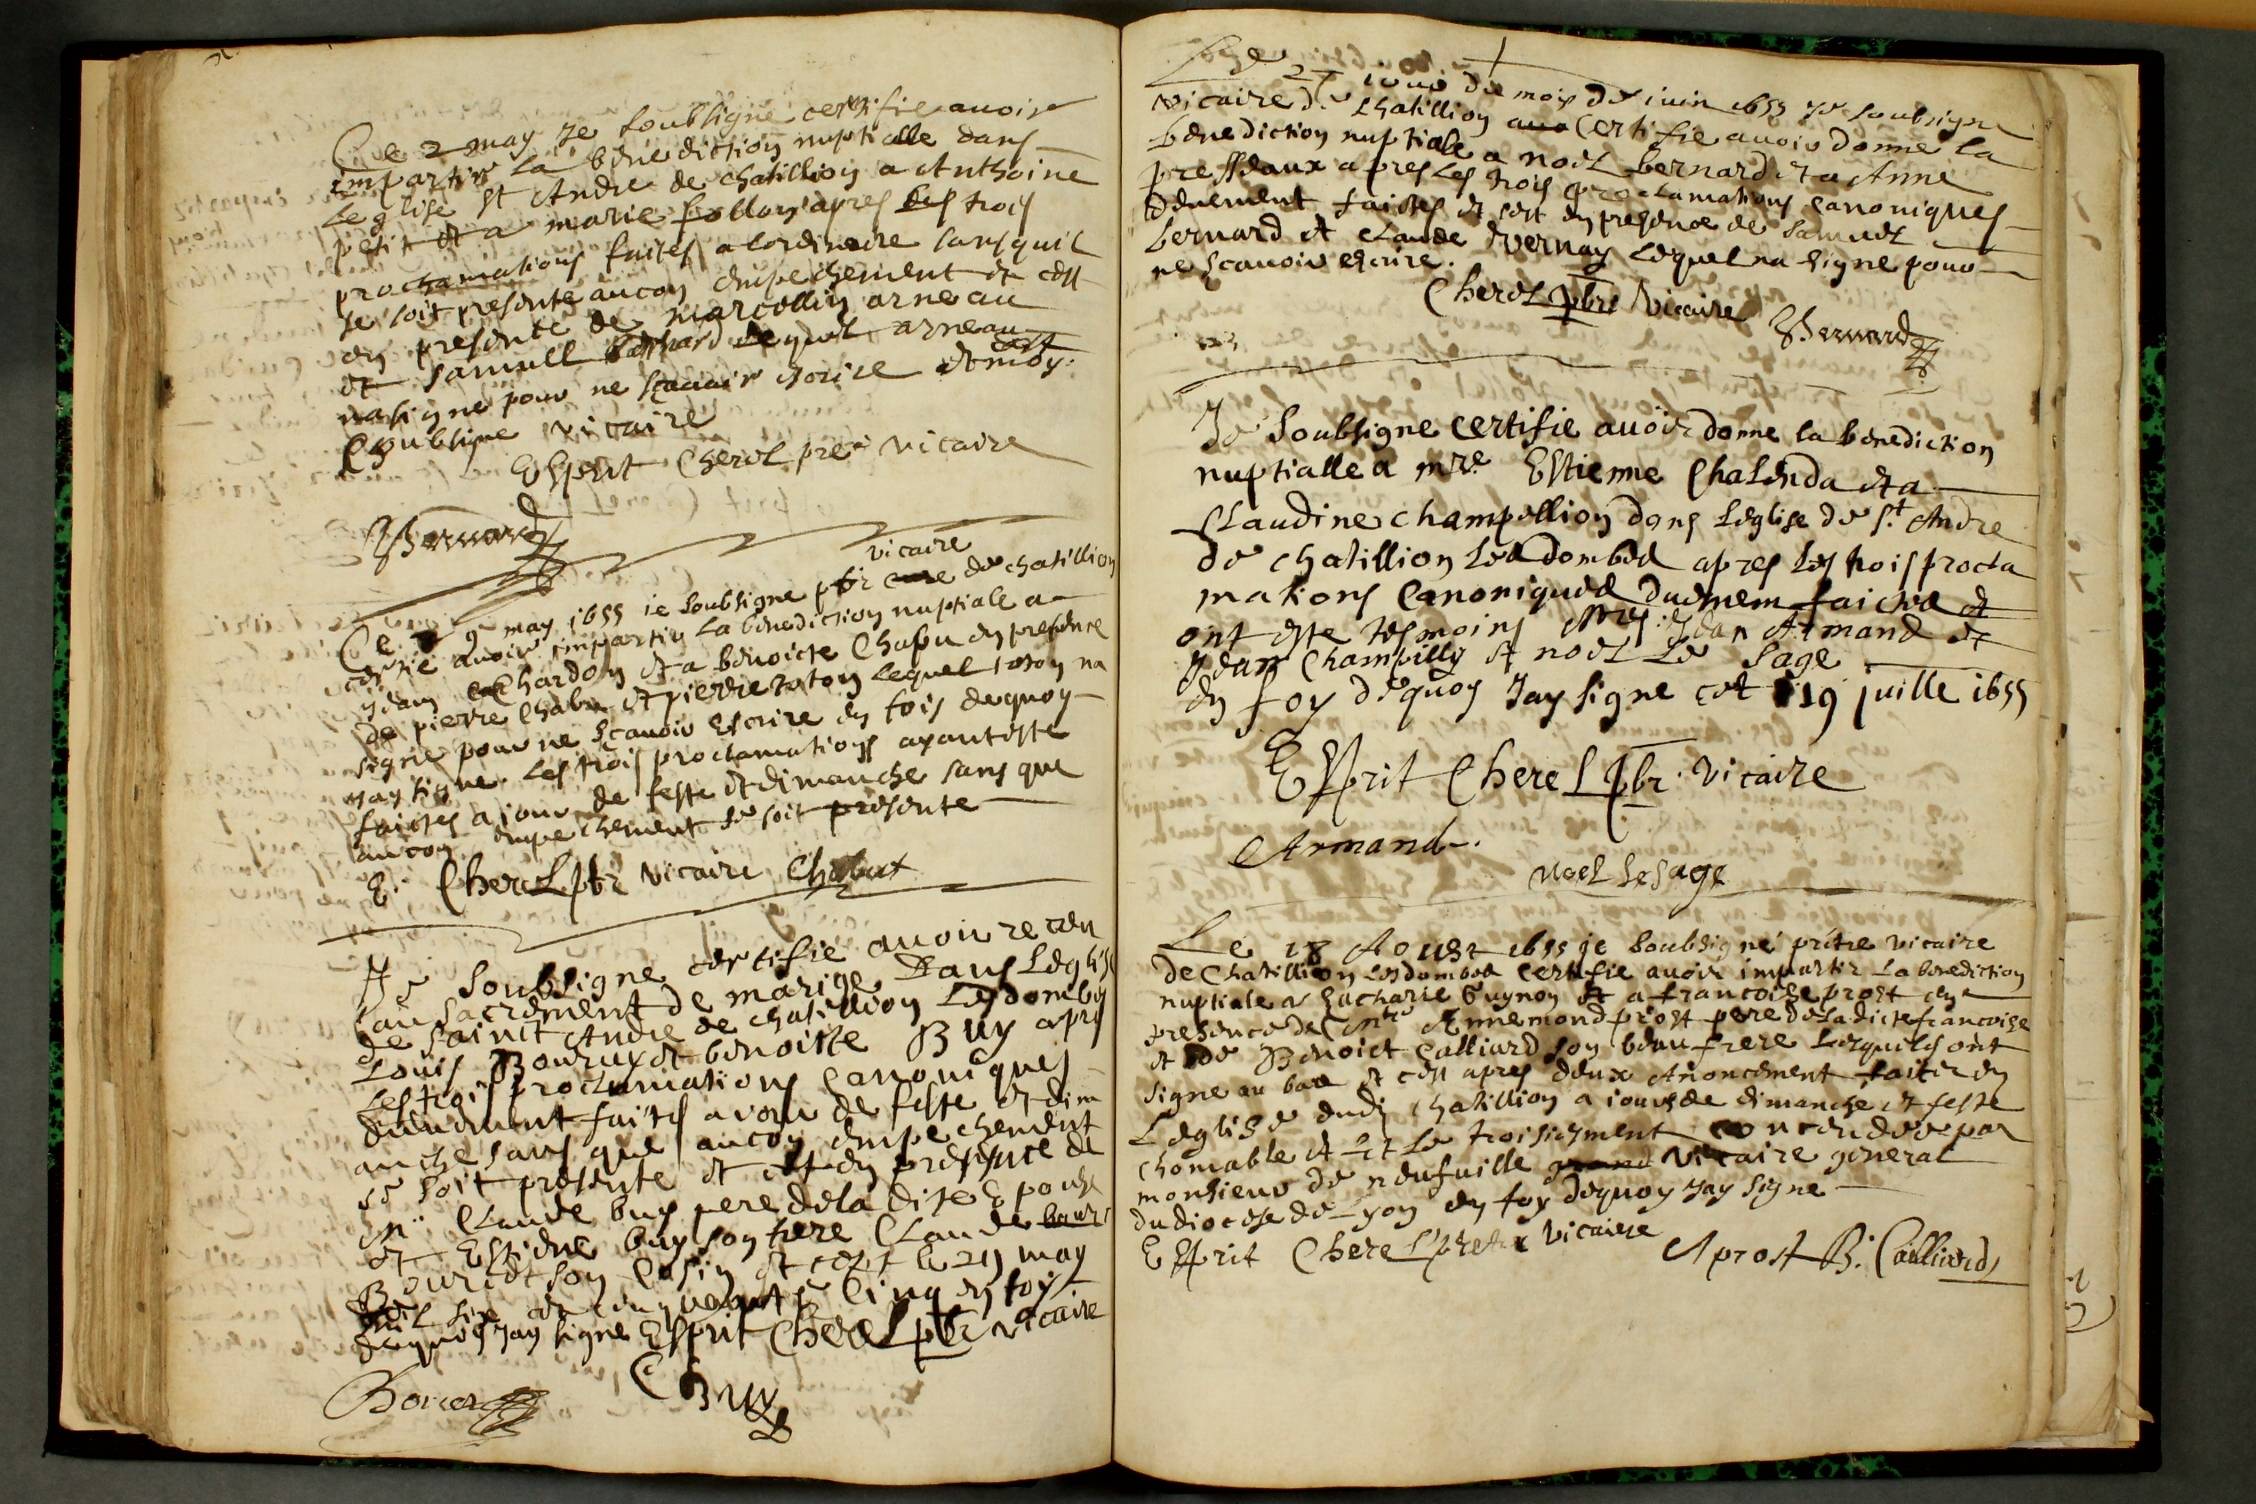 Ce 2 may Je soubsigne certifie avoir
impartir la benediction nuptialle dans
Leglise st Andre de chatillion a Anthoine
petit et a marie follon apres les trois
proclamations faites a lordinaire sans quil
se soit presente aucon empechement et cest
en presente de marcellin arneau
et samuell bernard lequel arneau
na signe pour ne scavoir escrire et moy
soubsigne vicaire
Esprit Cherel pre vicaire
Bernard
vicaire
Ce 9 may 1655 ie soubsigne pbr de chatillion
certifie avoir impartir la benediction nuptiale a
ydam Chardon et a benoicte Chabu en presence
de pierre Chabu et pierre toton lequel toton na
signe pour ne scavoir Escrire en fois dequoy
Jay signe. Les trois proclamations ayant este
faictes a iour de feste et dimanche sans que
aucon empechement se soit presente
E. Cherel pbr vicaire Chabut
Je soubsigne certifie avoir receu
au sacrement de marige Dans Leglise
de sainct Andre de chatillion Lesdombes
Louis Bouruet benoiste Buy apres
Les trois proclamations Canoniques
duuement faites a iour de feste et dim
anche sans que aucon empechement
se soit presente et cest en presence de
mr Claude buy pere de la dite Epouse
et Estiene buy son frere Claude
Bouriet son Cosin et cest le 29 may
mil six cet cinquante Cinq en foy
dequoy Jay signe Esprit Cherel pbr vicaire
C Buy
Le 27 iour du mois de iuin 1655 Je soubsigne
vicaire de Chatillion Certifie avoir donne la
benediction nuptiale a noel bernard et a Anne
presseaux apres les trois proclamations canoniques
deuement faictes et cest en presence de samuel
bernard et claude vernay lequel na signe pour
ne scavoir escrire.
Cherel pbre vicaire Bernard
Je Soubsigne certifie avoir donne la benediction
nuptialle a mre Estienne Chalenda et a
Claudine champellion dans Leglise de st Andre
de chatillion Les dombes apres les trois procla
mations Canoniques duemem faictes et
ont este tesmoins mres Jean Armand et
Jean Champilly et noel Le sage
en foy dequoy Jay signe cet 19 juille 1655
Esprit Cherel pbr. vicaire
Armand.
noel Lesage
Le 18 Aoust 1655 je soubsigne prétre vicaire
de Chatillion Lesdombes certifie avoir impartir La benediction
nuptiale a Zacharie Guynon et a francoise prost en
presence de mtre Annemond prost pere de la dicte francoise
et de Benoict Calliard son beau frere Lesquels ont
signe au bas et cest apres deux Anoncement faict en
Leglise dudi chatillion a iours de dimanche et feste
chomable et Le troisiesment concedee par
monsieur de neufville vicaire general
du diocese de Lyon en foy dequoy Jay signe
Esprit Cherel pretre vicaire A prost B. Calliard